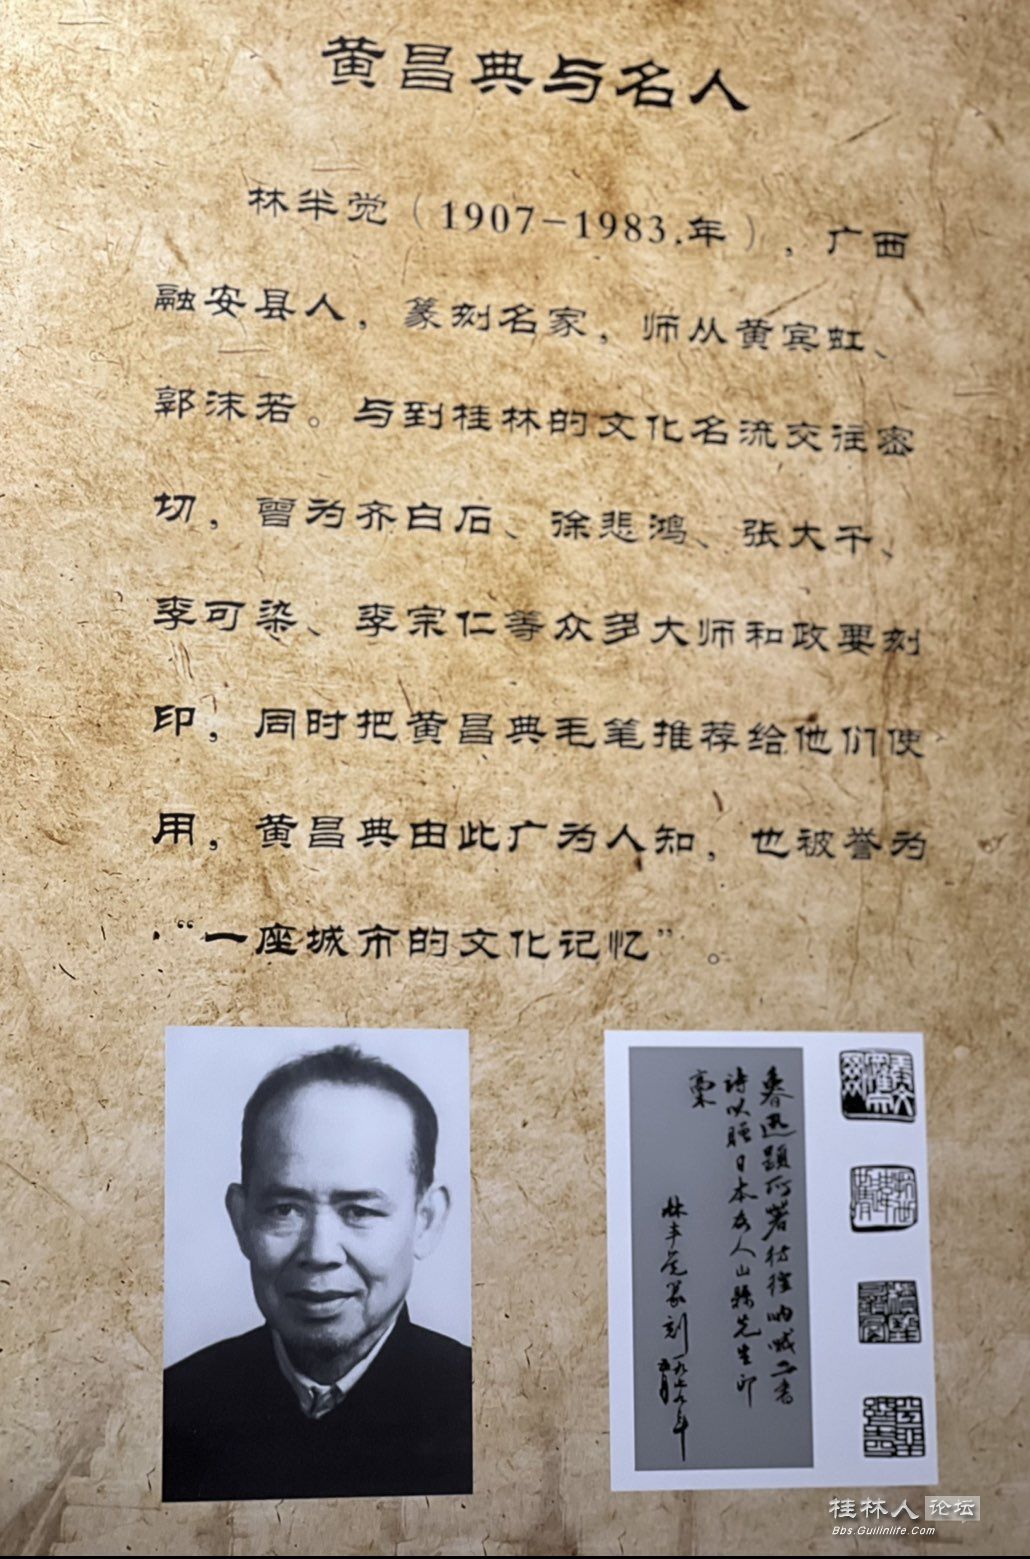 黄昌典与名人
林半觉（1907-1983.年），广西
融安县人，篆刻名家，师从黄宾虹、
郭沫若。与到桂林的文化名流交往密
切，曾为齐白石、徐悲鸿、张大千、
李可染、李宗仁等众多大师和政要刻
印，同时把黄昌典毛笔推荐给他们使
用，黄昌典由此广为人知，也被誉为
“一座城市的文化记忆”。
鲁迅题所著彷徨呐喊二书
诗以赠日本友人山县先生印
稾
林半觉篆刻一九七六年
桂林人论坛
Bbs.Guilinlife.Com